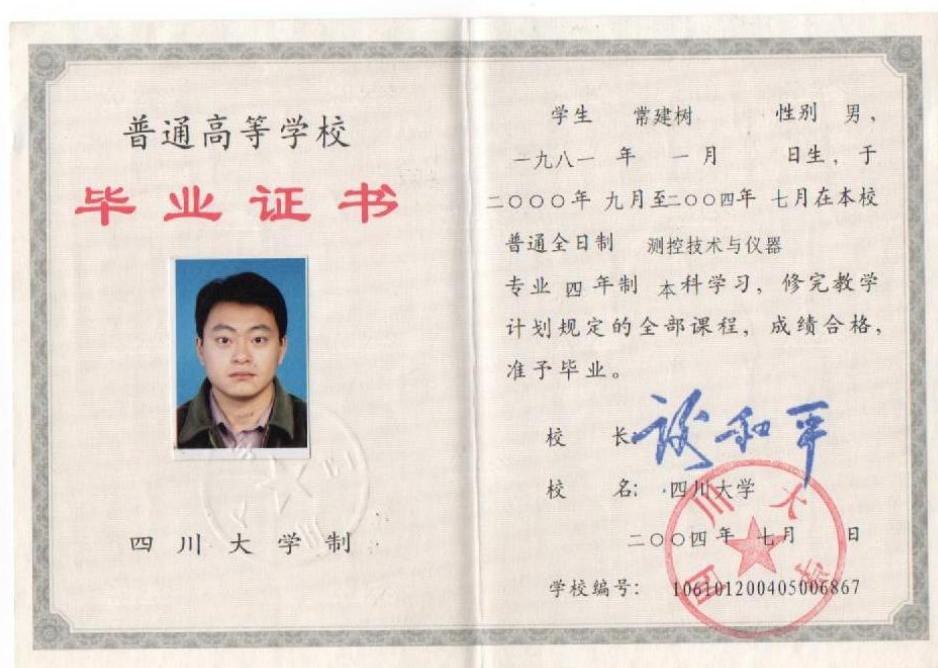 普通高等学校
毕业证书
四川大学制
学生 常建树 性别 男，
一九八一 年 一 月 日生，于
二〇〇〇年 九月至二〇〇四年 七月在本校
普通全日制 测控技术与仪器
专业 四 年制 本科学习，修完教学
计划规定的全部课程，成绩合格，
准予毕业。
校 长: 谢和平
校 名: 四川大学
二〇〇四 年 七月 日
学校编号: 106101200405006867
四川大学